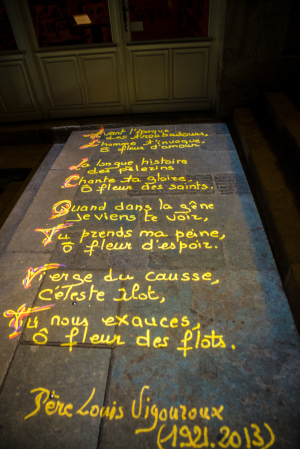 Avant l'époque
des troubadours,
L'homme t'invoque,
Ô fleur d'amour
La longue histoire
des pèlerins
Chante ta gloire,
Ô fleur des saints.
Quand dans la gêne
Je viens te voir,
Tu prends ma peine,
Ô fleur d'espoir.
Vierge du causse,
Céleste îlot,
Tu nous exauces,
Ô fleur des flots.
Père Louis Vigouroux
(1921.2013)